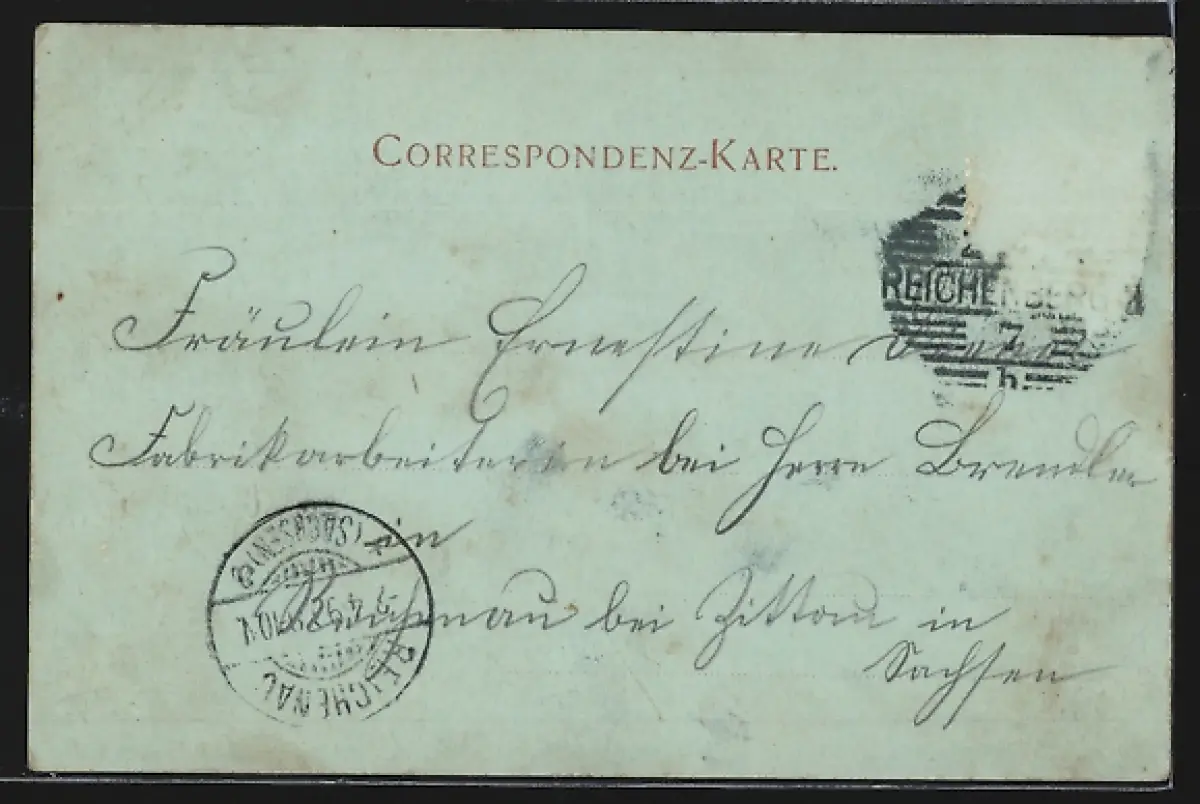 CORRESPONDENZ-KARTE.
REICHENBERG
h
Fräulein Ernestine
Fabrikarbeiterin bei Herrn Brendler
in
Reichenau bei Zittau in
Sachsen
(SACHSEN)
REICHENAU